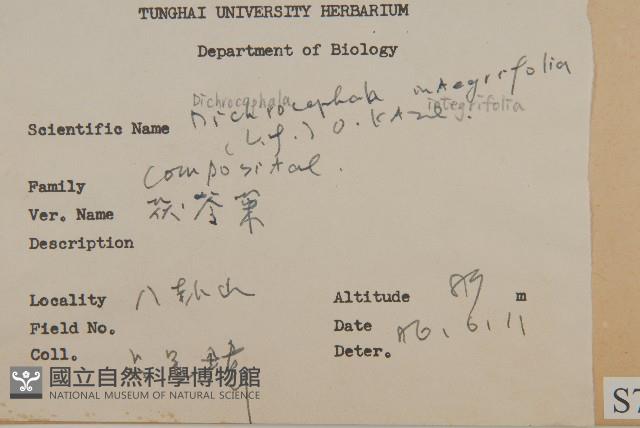 TUNGHAI UNIVERSITY HERBARIUM
Department of Biology
Dichrocephala integrifolia
Scientific Name Dichrocephala integrifolia
(L.f.) O. Ktze.
Family Compositae.
Ver. Name 茯苓菜
Description
Locality 八卦山 Altitude m
Field No. Date 86.6.11
Coll. Deter.
國立自然科學博物館
NATIONAL MUSEUM OF NATURAL SCIENCE
S7